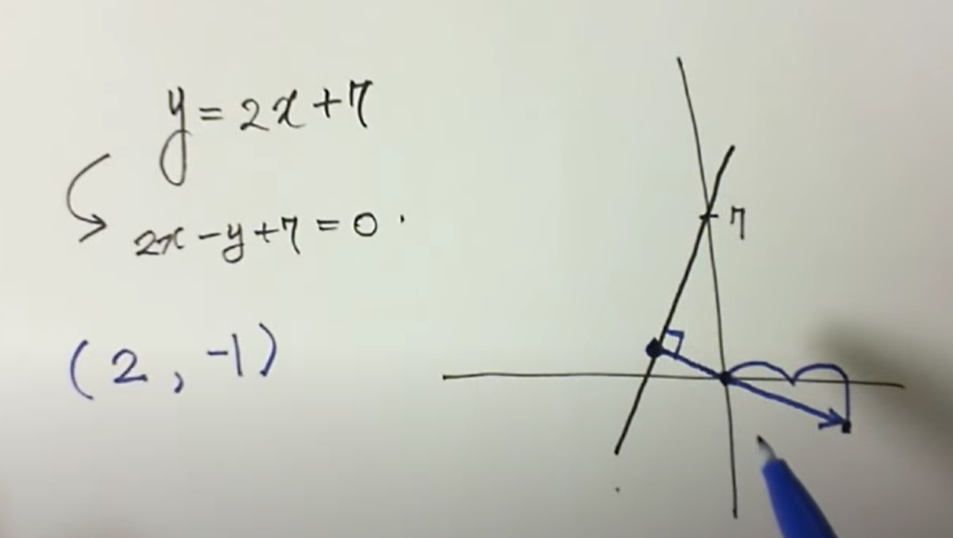 y = 2x + 7
7
2x - y + 7 = 0 .
(2, -1)